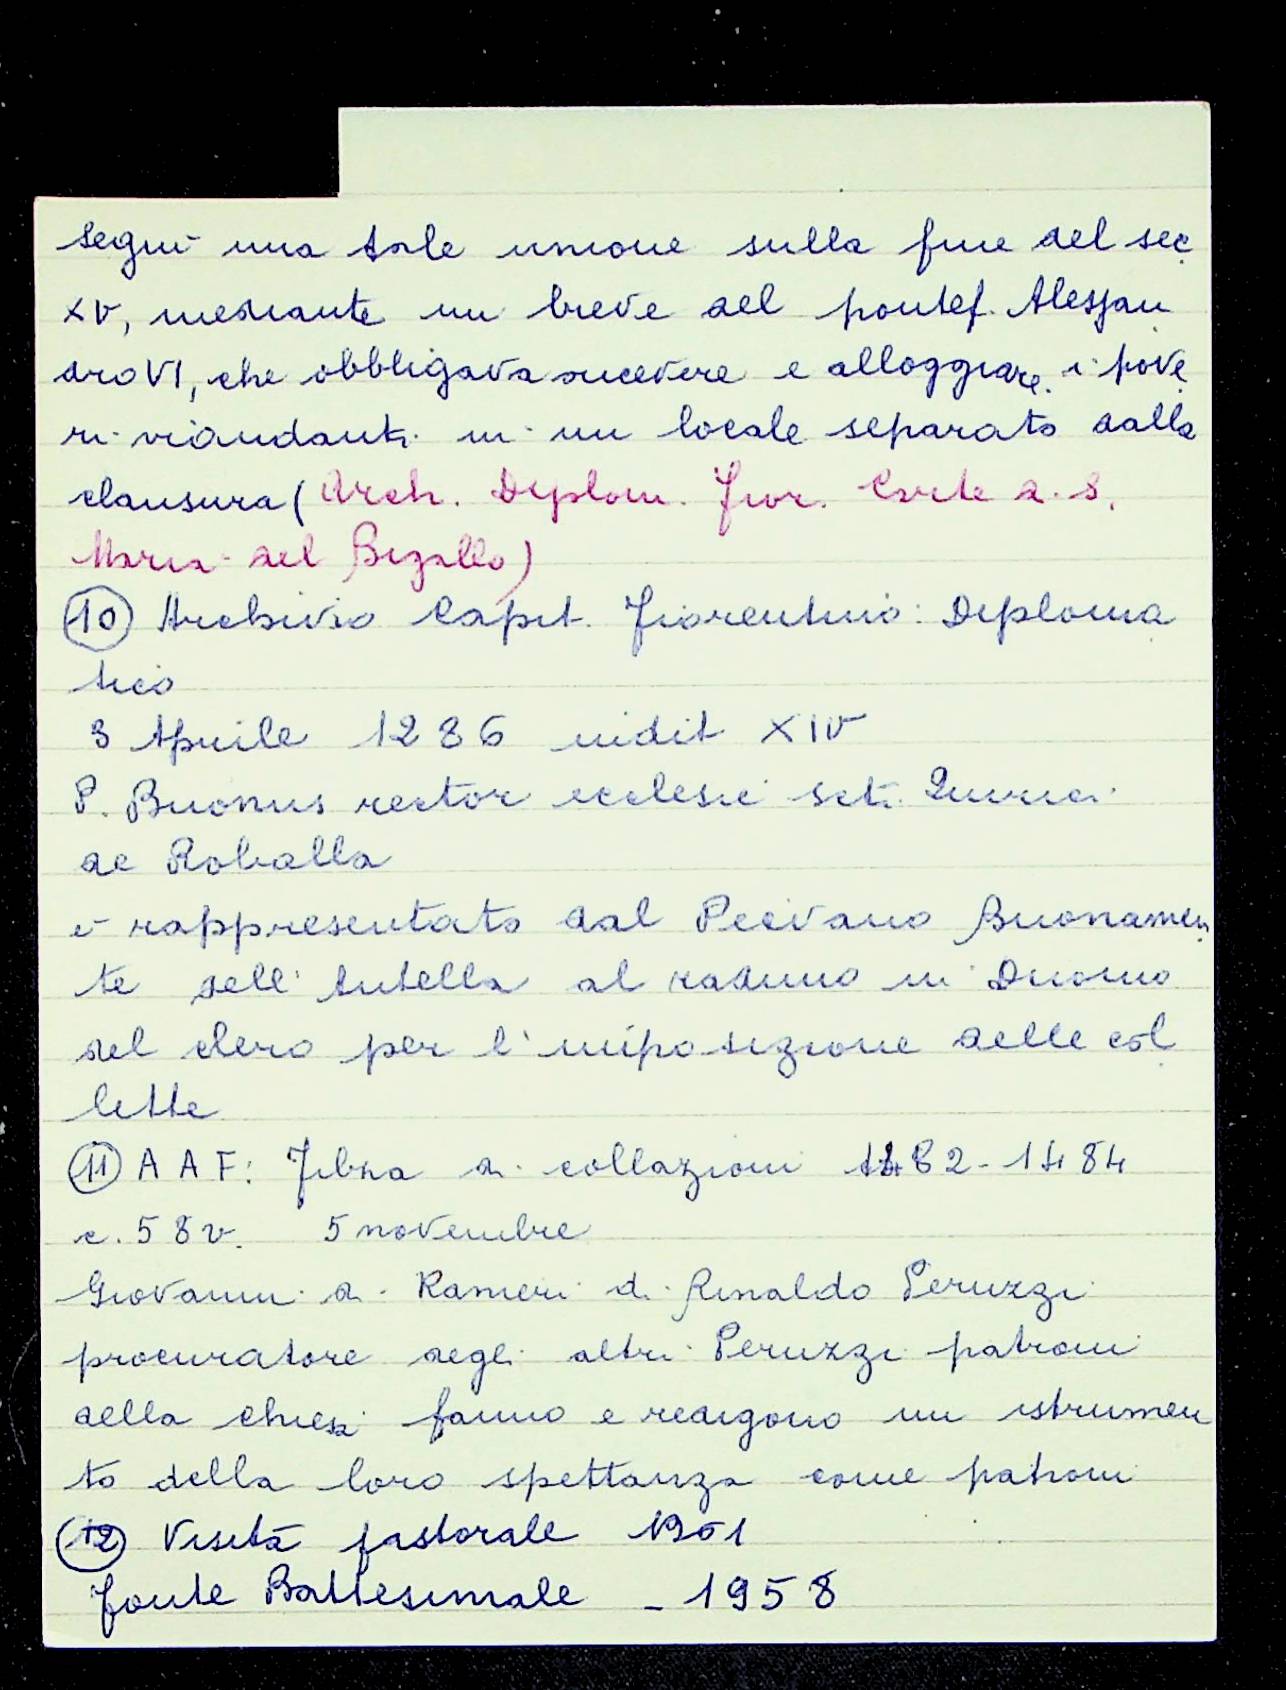 seguì una tale unione sulla fine del sec
XV, mediante un breve del pontef. Alessan
dro VI, che obbligava ricevere e alloggiare i pove
ri viandanti in un locale separato dalla
clausura (Arch. Diplom. Fior. Carte di S.
Maria del Bigallo)
(10) Archivio Capit. Fiorentino: Diploma
tico
3 Aprile 1286 indit XIV
P. Buonus rector ecclesie scti Quirici
de Roballa
è rappresentato dal Peivano Buonamen
te dell'Antella al raduno in Duomo
del clero per l'imposizione delle col
lette
(11) A A F: Filza di collazioni 1482-1484
c. 58v. 5 novembre
Giovanni di Ranieri di Rinaldo Peruzzi
procuratore degli altri Peruzzi patroni
della chiesa fanno e redigono un istrumen
to della loro spettanza come patroni
(12) Visita pastorale 1951
Fonte Battesimale - 1958